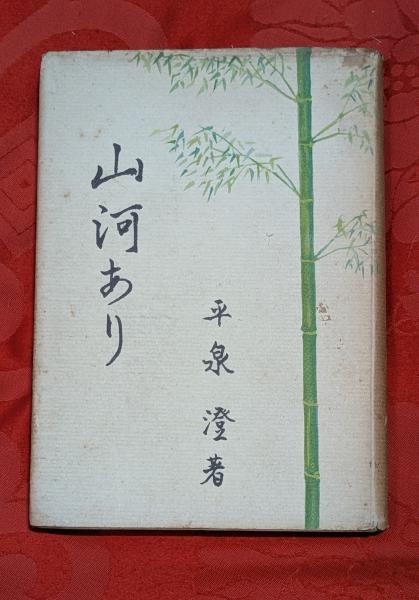 山河あり
平泉澄著